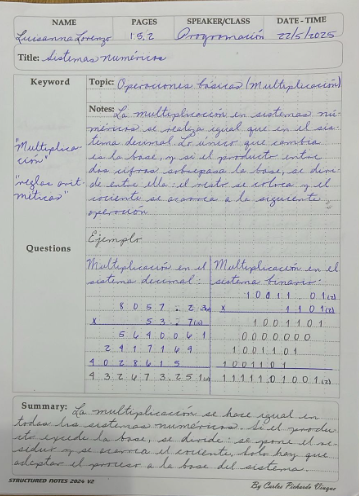 NAME PAGES SPEAKER/CLASS DATE - TIME
Luisanna Lorenzo 15,2 Programación 22/5/2025
Title: Sistemas numéricos
Keyword
Topic: Operaciones básicas (Multiplicación)
Notes: La multiplicación en sistemas nú-
méricos se realiza igual que en el sis-
tema decimal. Lo único que cambia
es la base, y si el producto entre
dos cifras sobrepasa la base, se divi-
de entre ella: el resto se coloca y el
cociente se acarrea a la siguiente
operación.
"Multiplica-
ción"
"reglas arit-
méticas"
Questions
Ejemplo
Multiplicación en el
sistema decimal:
8 0 5 7 . 2 3
x 5 3 . 7
5 6 4 0 0 6 1
2 4 1 7 1 6 9
4 0 2 8 6 1 5
4 3 2 6 7 3 . 2 5 1
Multiplicación en el
sistema binario:
1 0 0 1 1 . 0 1 (2)
x 1 1 0 1 (2)
1 0 0 1 1 0 1
0 0 0 0 0 0 0
1 0 0 1 1 0 1
1 0 0 1 1 0 1
1 1 1 1 1 0 1 0 . 0 1 (2)
Summary: La multiplicación se hace igual en
todos los sistemas numéricos. Si el produc-
to excede la base, se divide: se pone el re-
siduo y se acarrea el cociente, solo hay que
adaptar el proceso a la base del sistema.
STRUCTURED NOTES 2024 V2
By Carlos Pichardo Viuque